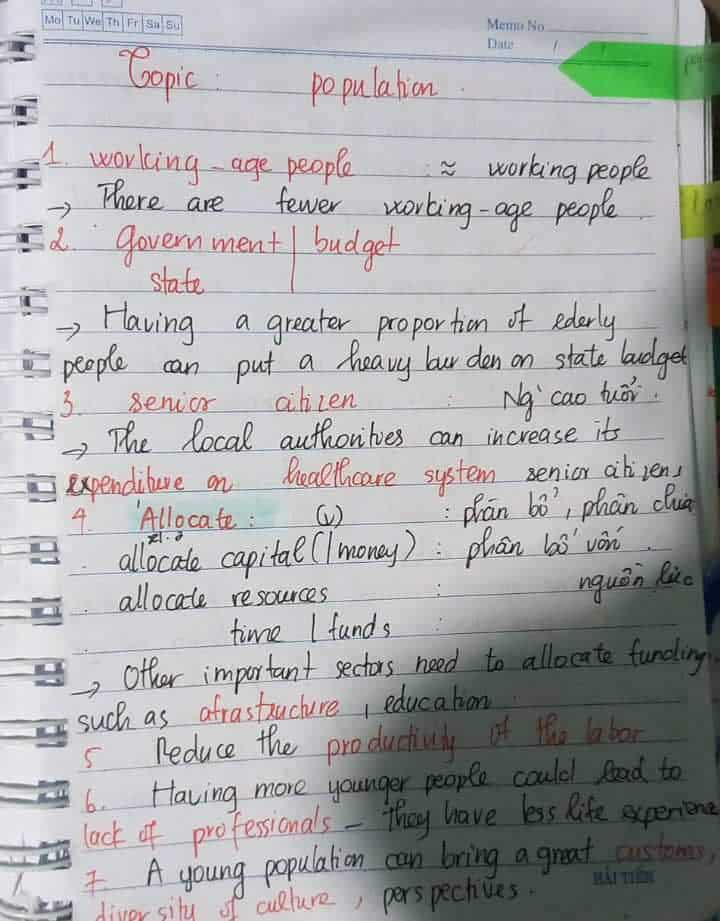 Mo Tu We Th Fr Sa Su
Memo No
Date / /
Topic : population .
1. working - age people : ≈ working people
→ There are fewer working-age people .
2. government / budget
state
→ Having a greater proportion of ederly
people can put a heavy burden on state budget
3. senior citizen : Ng` cao tuổi .
→ The local authorities can increase its
expenditure on healthcare system senior citizens
4 Allocate : (v) : phân bổ , phân chia
. allocate capital ( / money ) : phân bổ vốn .
. allocate resources : nguồn lực
. time / funds :
→ Other important sectors need to allocate funding
such as afrastructure , education
5 Reduce the productivity of the labor
6. Having more younger people could lead to
lack of professionals – they have less life experience
7. A young population can bring a great customs,
HẢI TIẾN
diversity of culture , perspectives .